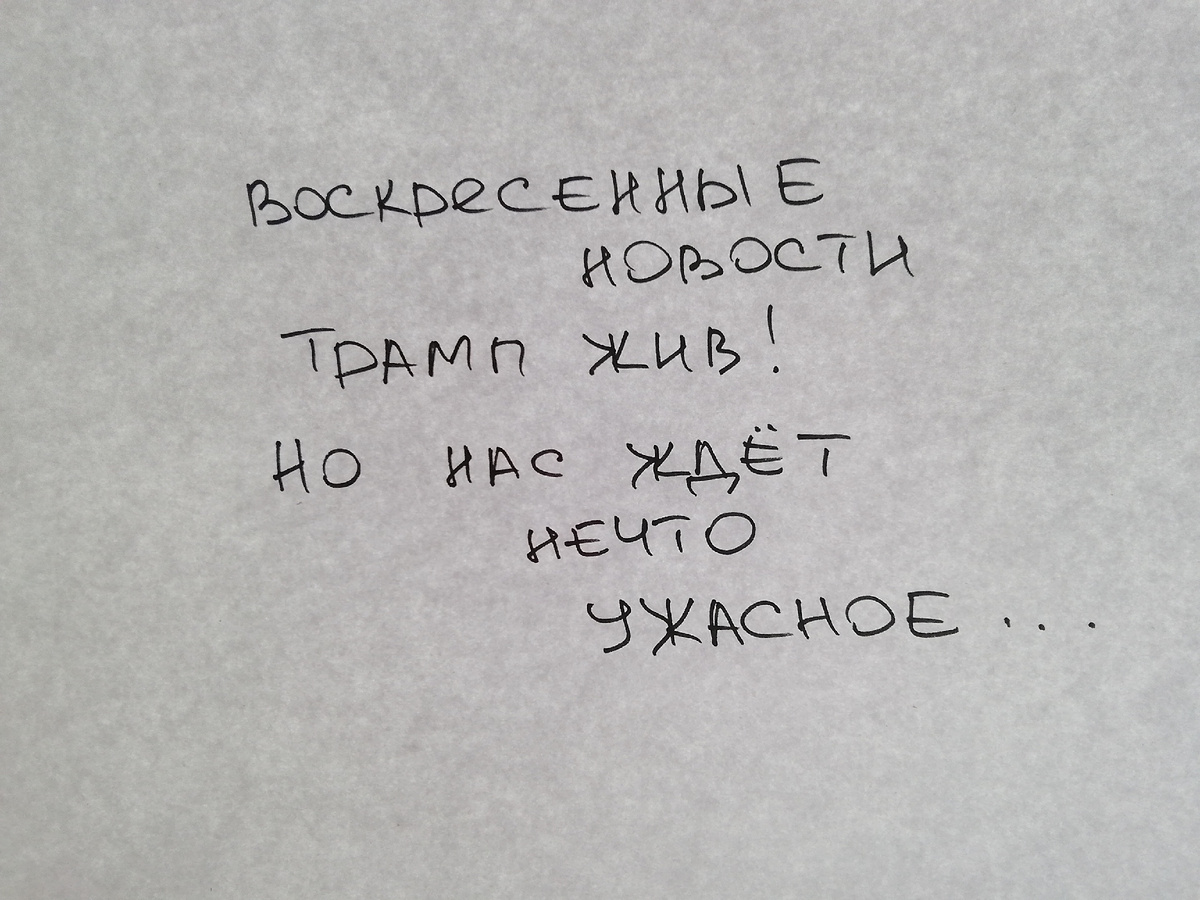 ВОСКРЕСЕННЫЕ
НОВОСТИ
ТРАМП ЖИВ!
НО НАС ЖДЁТ
НЕЧТО
УЖАСНОЕ...